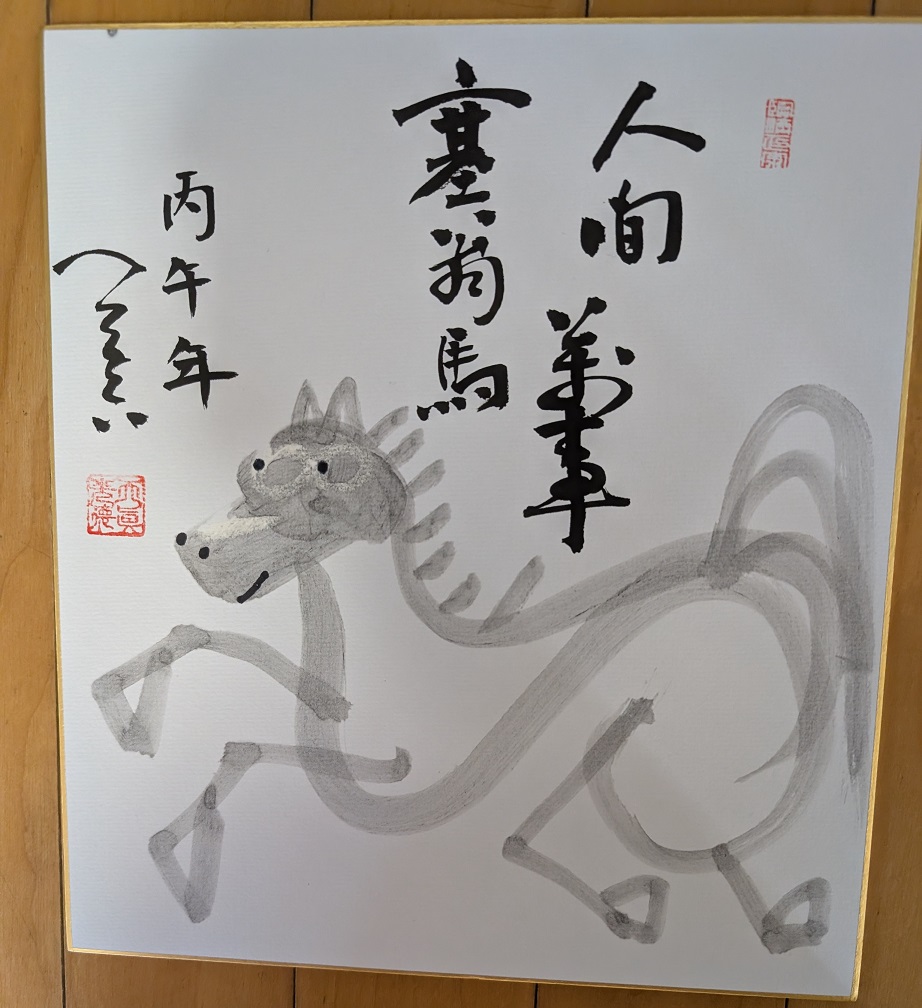 人間萬事
塞翁馬
丙午年